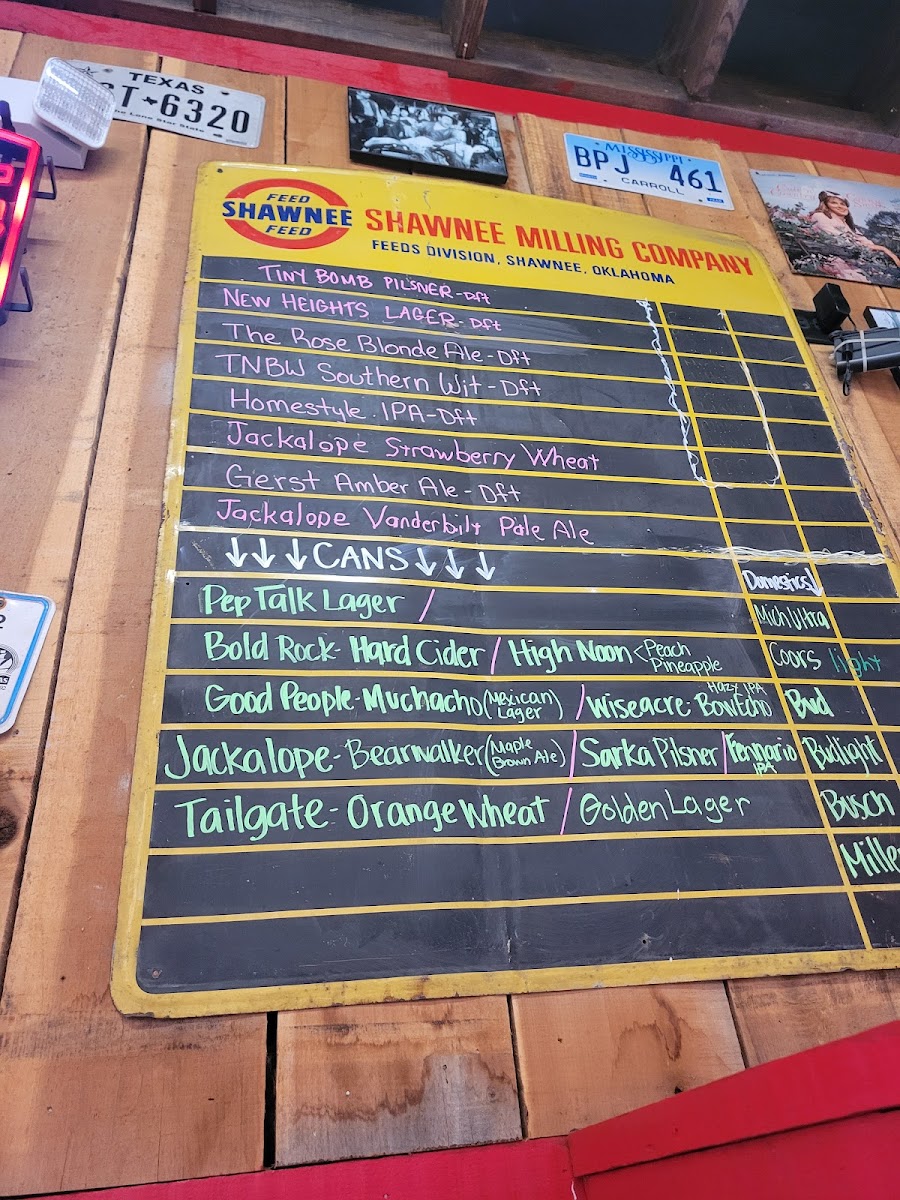 TEXAS
T★6320
The Lone Star State
MISSISSIPPI
BPJ 461
CARROLL
FEED
SHAWNEE
FEED
SHAWNEE MILLING COMPANY
FEEDS DIVISION, SHAWNEE, OKLAHOMA
TINY BOMB PILSNER-Dft
NEW HEIGHTS LAGER-Dft
The Rose Blonde Ale-Dft
TNBW Southern Wit-Dft
Homestyle IPA-Dft
Jackalope Strawberry Wheat
Gerst Amber Ale-Dft
Jackalope Vanderbilt Pale Ale
↓↓↓CANS↓↓↓
Domestics↓
Pep Talk Lager /
Mich Ultra
Bold Rock- Hard Cider / High Noon < Peach
Pineapple
Coors light
Good People-Muchacho (Mexican Lager) / Wiseacre Bowtcho Hazy IPA
Bud
Jackalope-Bearwalker (Maple Brown Ale) / Sarka Pilsner / Fennario IPA
Budlight
Tailgate-Orange Wheat / Golden Lager
Busch
Mille